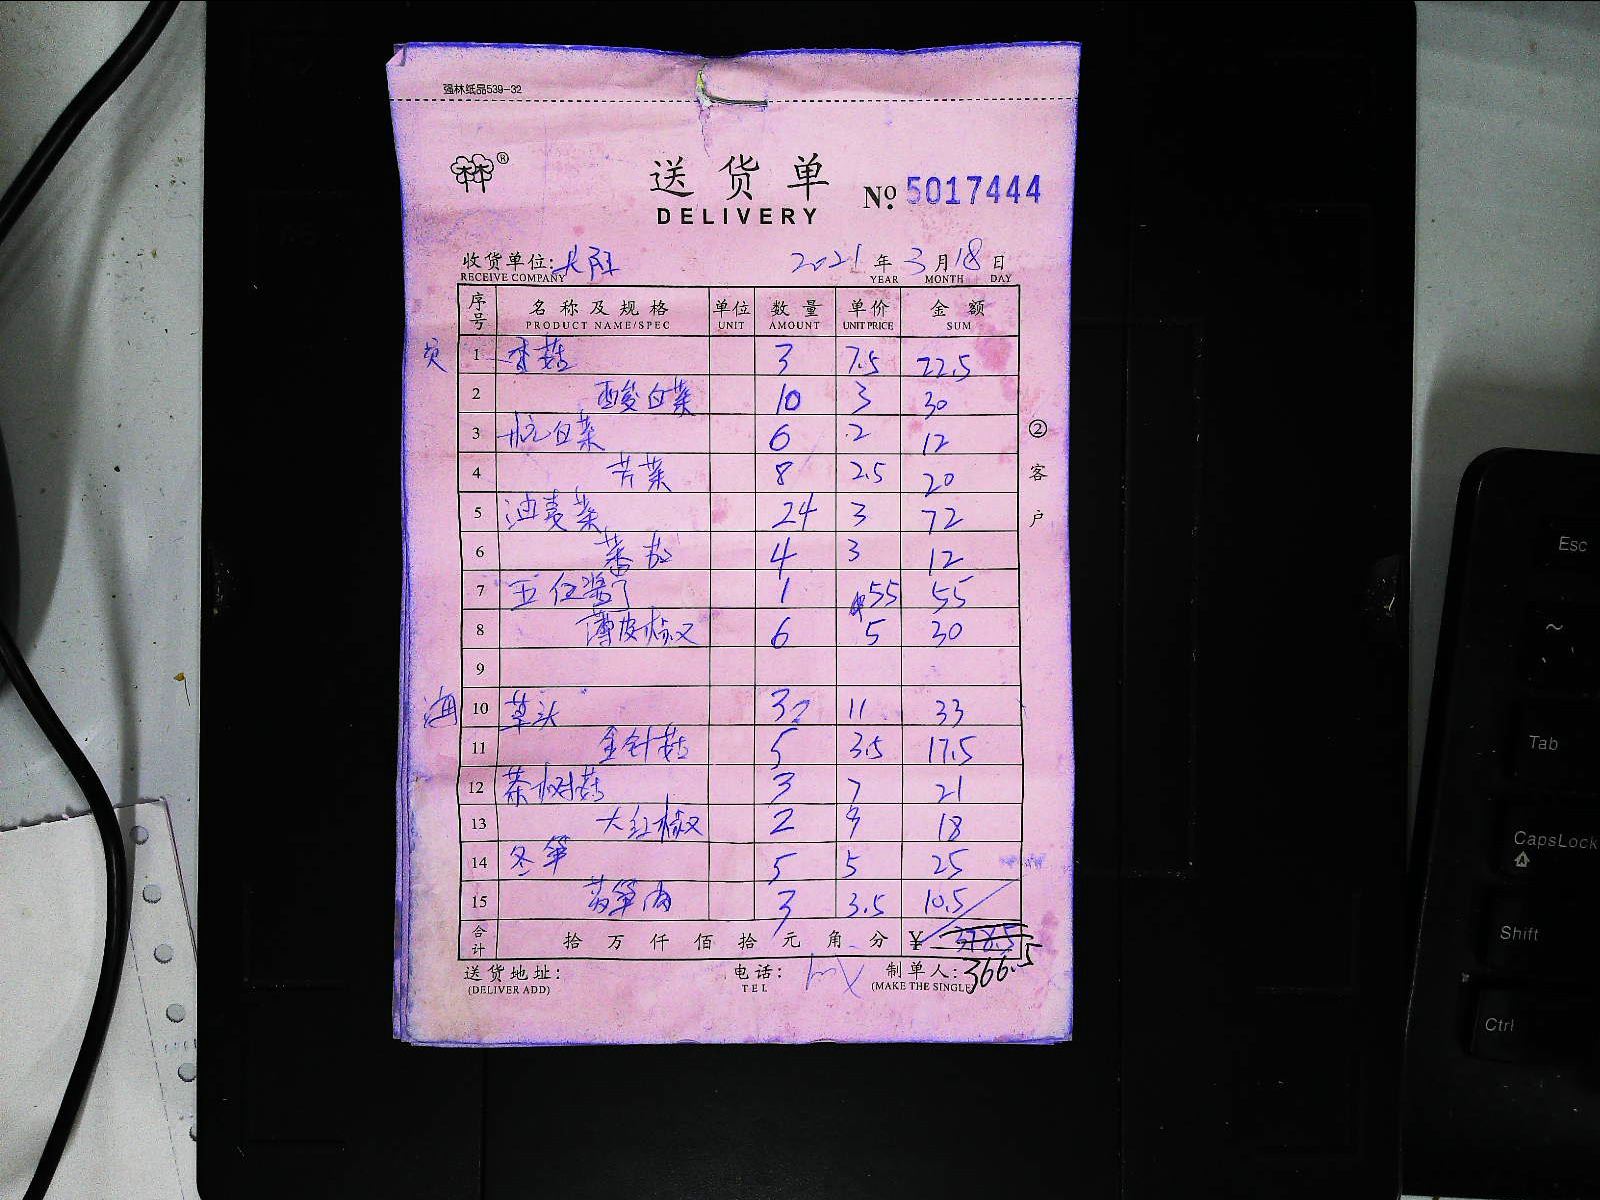 强林纸品539-32
®
送货单
DELIVERY
№ 5017444
收货单位: 2021年3月18日
RECEIVE COMPANY YEAR MONTH DAY
序号 名称及规格 单位 数量 单价 金额
PRODUCT NAME/SPEC UNIT AMOUNT UNIT PRICE SUM
1 香菇 3 7.5 22.5
2 酸白菜 10 3 30
3 杭白菜 6 2 12
4 芹菜 8 2.5 20
5 油麦菜 24 3 72
6 蕃茄 4 3 12
7 五位 1 55 55
8 薄皮椒 6 5 30
9
海 10 草头 3 11 33
11 金针菇 5 3.5 17.5
12 茶树菇 3 7 21
13 大红椒 2 9 18
14 冬笋 5 5 25
15 笋 3 3.5 10.5
合计 拾万仟佰拾元角分 ¥ 378.5
366.5
②客户
送货地址: 电话: 制单人:
(DELIVER ADD) TEL (MAKE THE SINGLE)
Esc
~
Tab
CapsLock
Shift
Ctrl